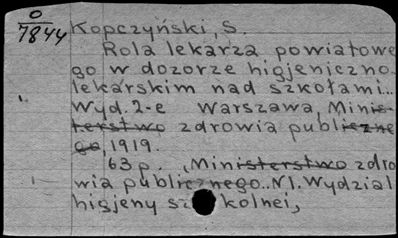 O
7844
Kopczyński, S.
Rola lekarza powiatowe
go w dozorze higjeniczno-
lekarskim nad szkołami..
Wyd. 2-e Warszawa, Minis-
terstwo zdrowia publiczne
go, 1919.
63 p. (Ministerstwo zdro
wia publicznego.. N1. Wydział
higjeny szkolnej,